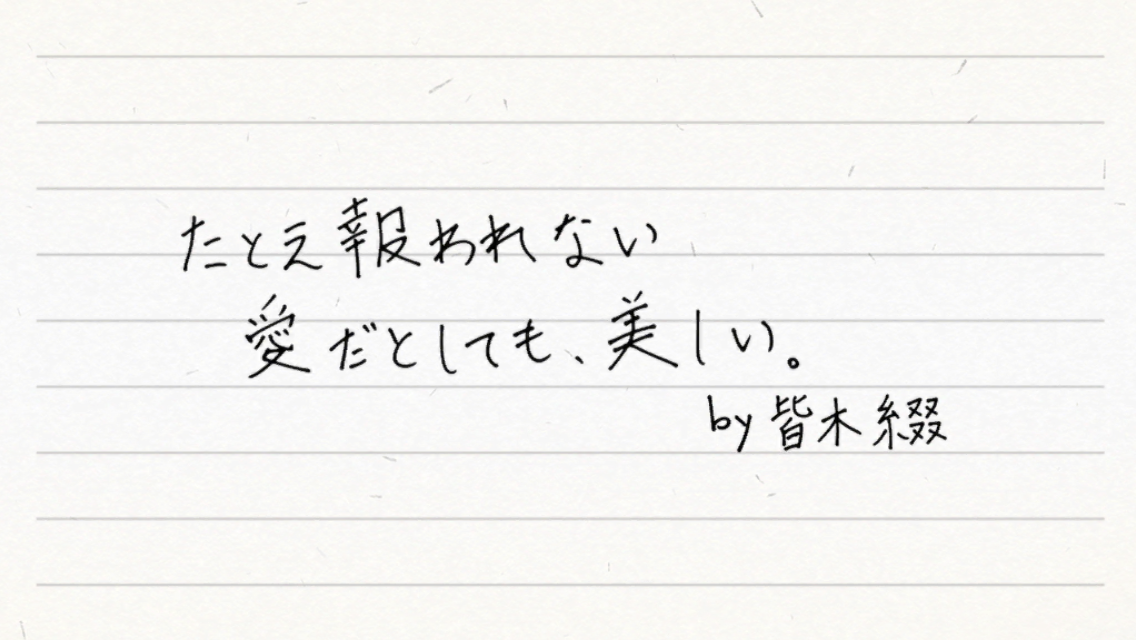 たとえ報われない
愛だとしても、美しい。
by 皆木綴